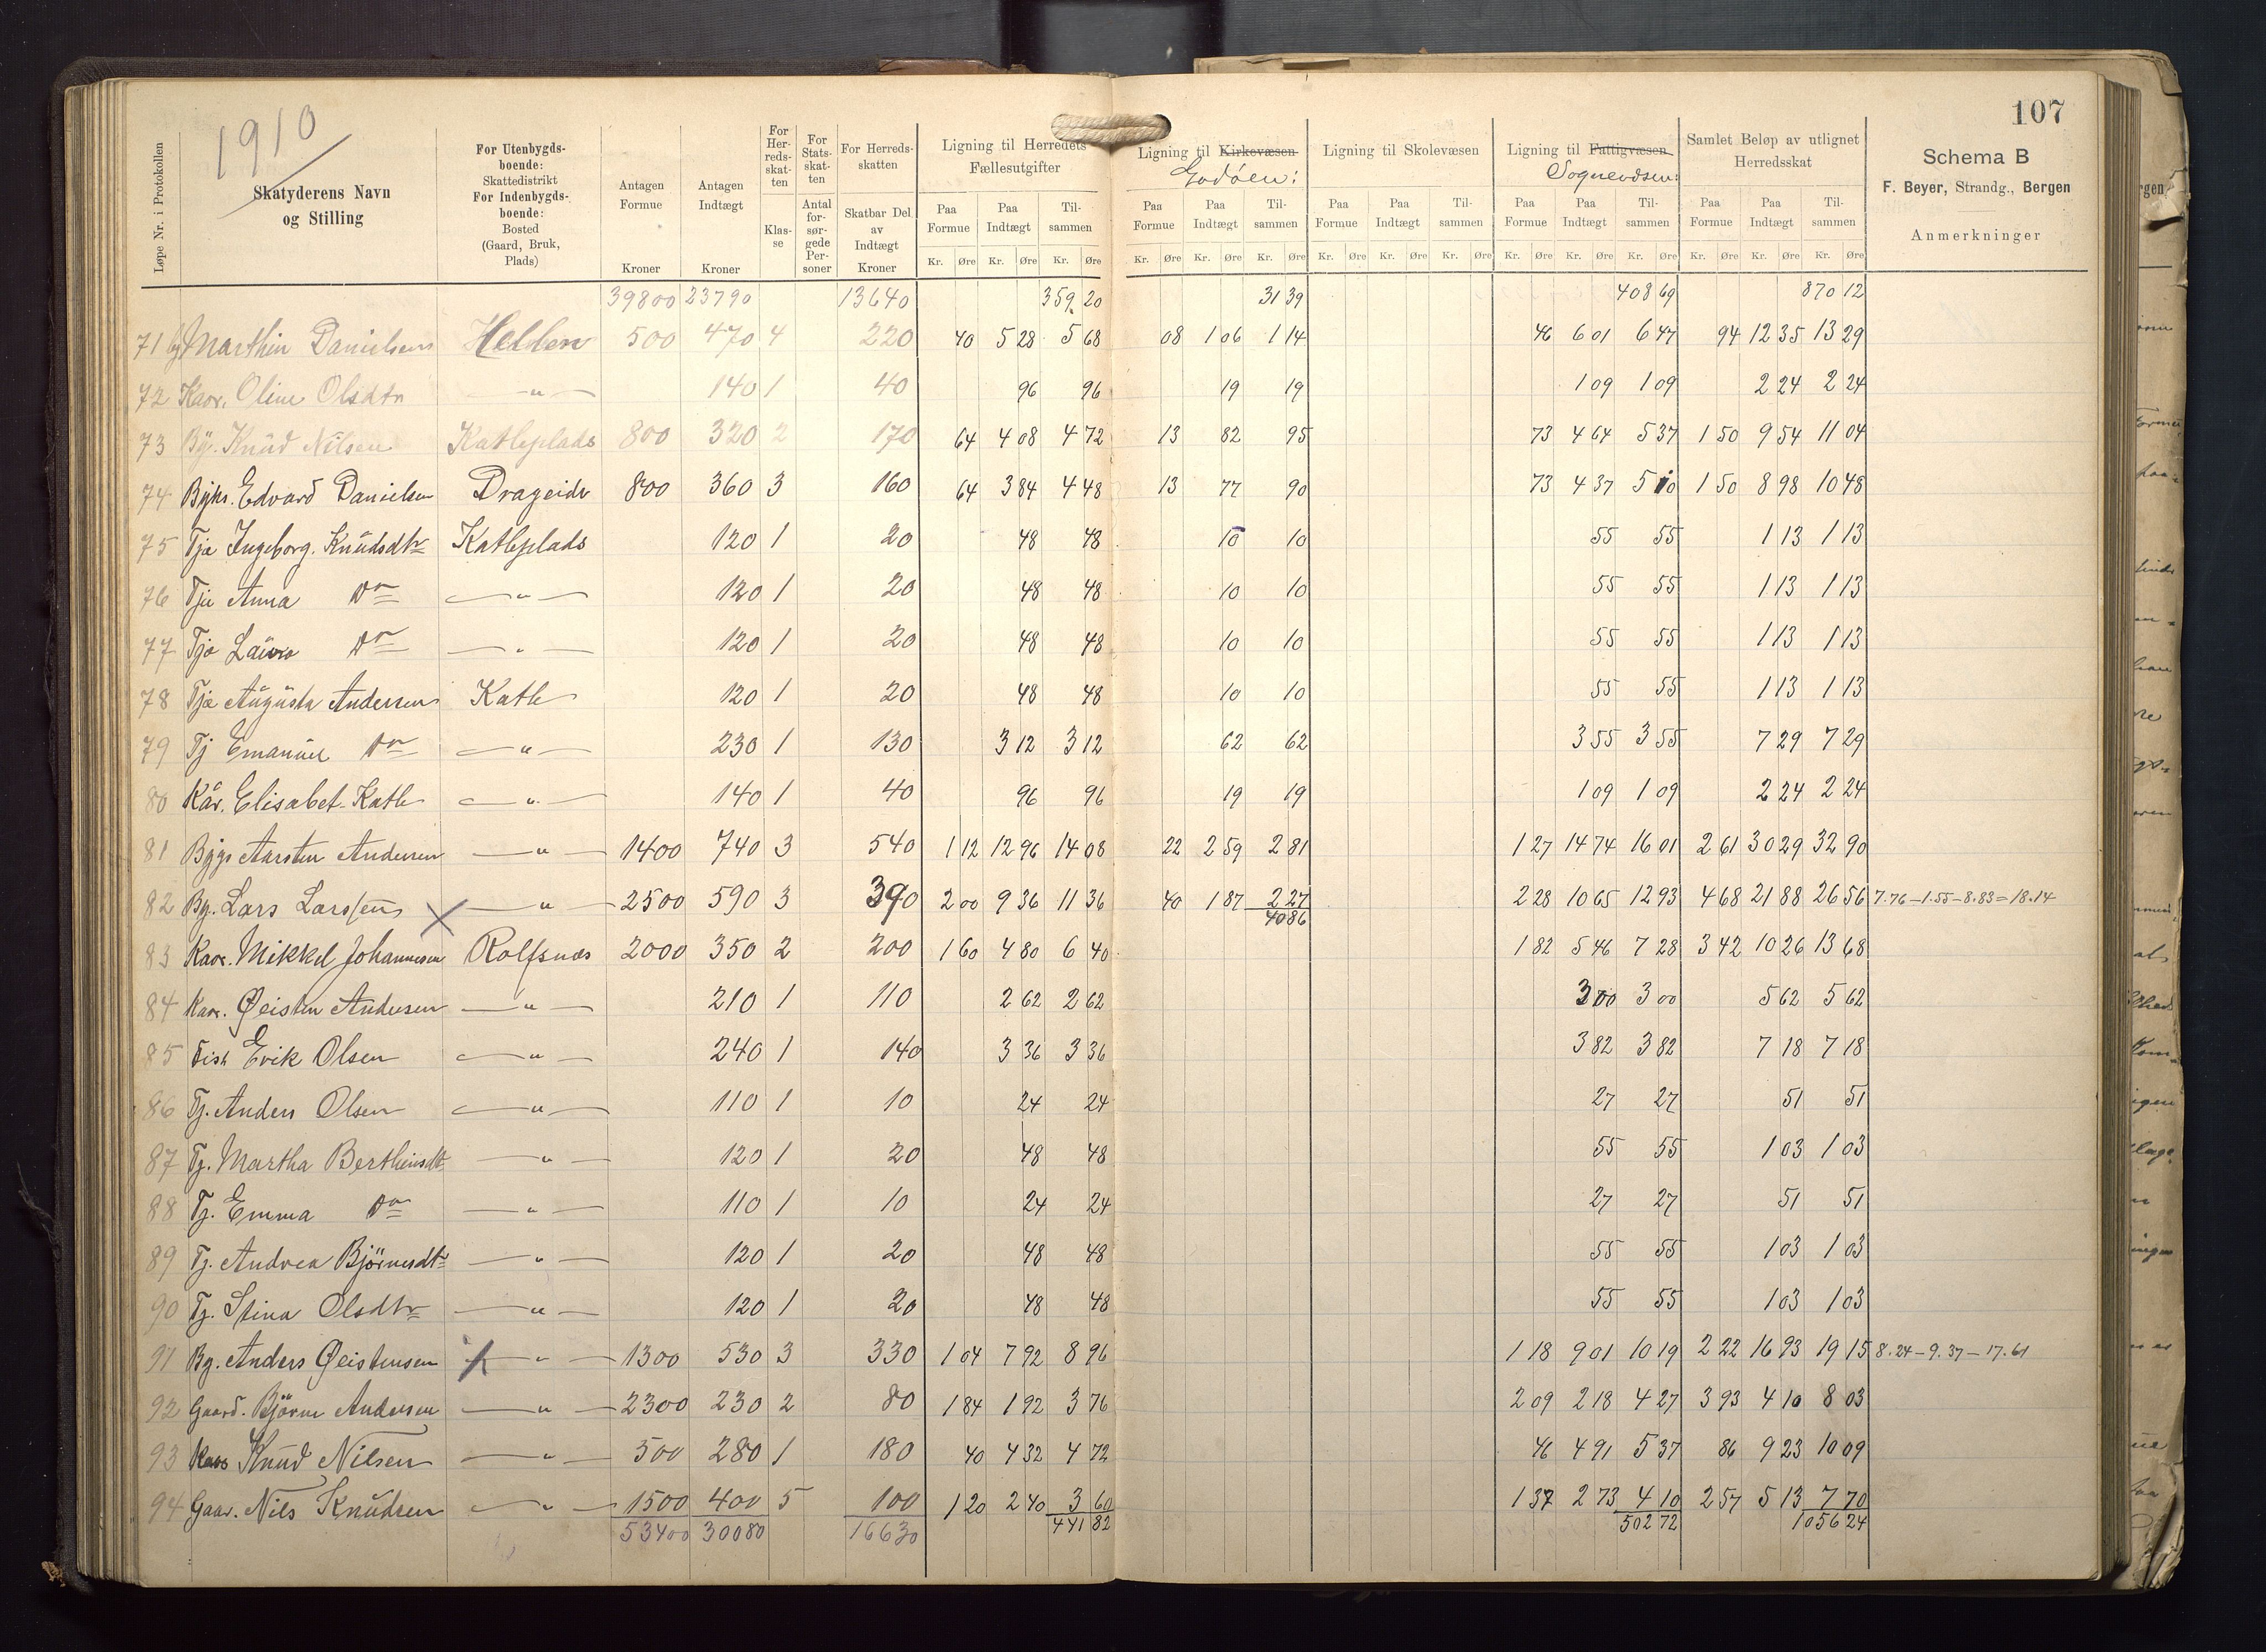 107
1910
Løpe Nr. i Protokollen
Skatyderens Navn og Stilling
For Utenbygds-boende: Skattedistrikt For Indenbygds-boende: Bosted (Gaard, Bruk, Plads)
Antagen Formue Kroner
Antagen Indtægt Kroner
For Her-reds-skat-ten Klas-se
For Stats-skat-ten Antal for-sør-gede Per-soner
For Herreds-skatten Skatbar Del av Indtægt Kroner
Ligning til Herredets Fællesutgifter
Paa Formue Paa Indtægt Til-sammen
Kr. Øre Kr. Øre Kr. Øre
Ligning til Kirkevæsen
Godøen:
Paa Formue Paa Indtægt Til-sammen
Kr. Øre Kr. Øre Kr. Øre
Ligning til Skolevæsen
Paa Formue Paa Indtægt Til-sammen
Kr. Øre Kr. Øre Kr. Øre
Ligning til Fattigvæsen
Sognevæsen:
Paa Formue Paa Indtægt Til-sammen
Kr. Øre Kr. Øre Kr. Øre
Samlet Beløp av utlignet Herredsskat
Paa Formue Paa Indtægt Til-sammen
Kr. Øre Kr. Øre Kr. Øre
Schema B
F. Beyer, Strandg., Bergen
Anmerkninger
39800 23790 13640 359 20 31 39 408 69 870 12
71 Marthin Danielsen Helden 500 470 4 220 40 5 28 5 68 08 1 06 1 14 46 6 01 6 47 94 12 35 13 29
72 Kaar. Oline Olsdtr —"— 140 1 40 96 96 19 19 1 09 1 09 2 24 2 24
73 Bg. Knud Nilsen Katleplads 800 320 2 170 64 4 08 4 72 13 82 95 73 4 64 5 37 1 50 9 54 11 04
74 Bghr. Edvard Danielsen Drageide 800 360 3 160 64 3 84 4 48 13 77 90 73 4 37 5 10 1 50 8 98 10 48
75 Tje Ingeborg. Knudsdtr Katleplads 120 1 20 48 48 10 10 55 55 1 13 1 13
76 Tje Anna Do —"— 120 1 20 48 48 10 10 55 55 1 13 1 13
77 Tje Laura Do —"— 120 1 20 48 48 10 10 55 55 1 13 1 13
78 Tje Augusta Andersen Katle 120 1 20 48 48 10 10 55 55 1 13 1 13
79 Tj Emanuel Do —"— 230 1 130 3 12 3 12 62 62 3 55 3 55 7 29 7 29
80 Kår. Elisabet Katle —"— 140 1 40 96 96 19 19 1 09 1 09 2 24 2 24
81 Bggs Aarsten Andersen —"— 1400 740 3 540 1 12 12 96 14 08 22 2 59 2 81 1 27 14 74 16 01 2 61 30 29 32 90
82 Bg. Lars Larssen X —"— 2500 590 3 390 2 00 9 36 11 36 40 1 87 2 27 2 28 10 65 12 93 4 68 21 88 26 56 7.76–1.55–8.83=18.14
40 86
83 Kaar. Mikkel Johannesen Rolfsnæs 2000 350 2 200 1 60 4 80 6 40 1 82 5 46 7 28 3 42 10 26 13 68
84 Kaar. Øeisten Andersen —"— 210 1 110 2 62 2 62 3 00 3 00 5 62 5 62
85 Fisk Erik Olsen —"— 240 1 140 3 36 3 36 3 82 3 82 7 18 7 18
86 Tj. Anders Olsen —"— 110 1 10 24 24 27 27 51 51
87 Tj. Martha Berthinsdt —"— 120 1 20 48 48 55 55 1 03 1 03
88 Tj. Emma Do —"— 110 1 10 24 24 27 27 51 51
89 Tj. Andrea Björnesdtr —"— 120 1 20 48 48 55 55 1 03 1 03
90 Tj. Stina Olsdtr —"— 120 1 20 48 48 55 55 1 03 1 03
91 Bg. Anders Øeistensen X —"— 1300 530 3 330 1 04 7 92 8 96 1 18 9 01 10 19 2 22 16 93 19 15 8.24–9.37–17.61
92 Gaard. Björne Andersen —"— 2300 230 2 80 1 84 1 92 3 76 2 09 2 18 4 27 3 93 4 10 8 03
93 Kaar Knud Nilsen —"— 500 280 1 180 40 4 32 4 72 46 4 91 5 37 86 9 23 10 09
94 Gaar. Nils Knudsen —"— 1500 400 5 100 1 20 2 40 3 60 1 37 2 73 4 10 2 57 5 13 7 70
53400 30080 16630 441 82 502 72 1056 24